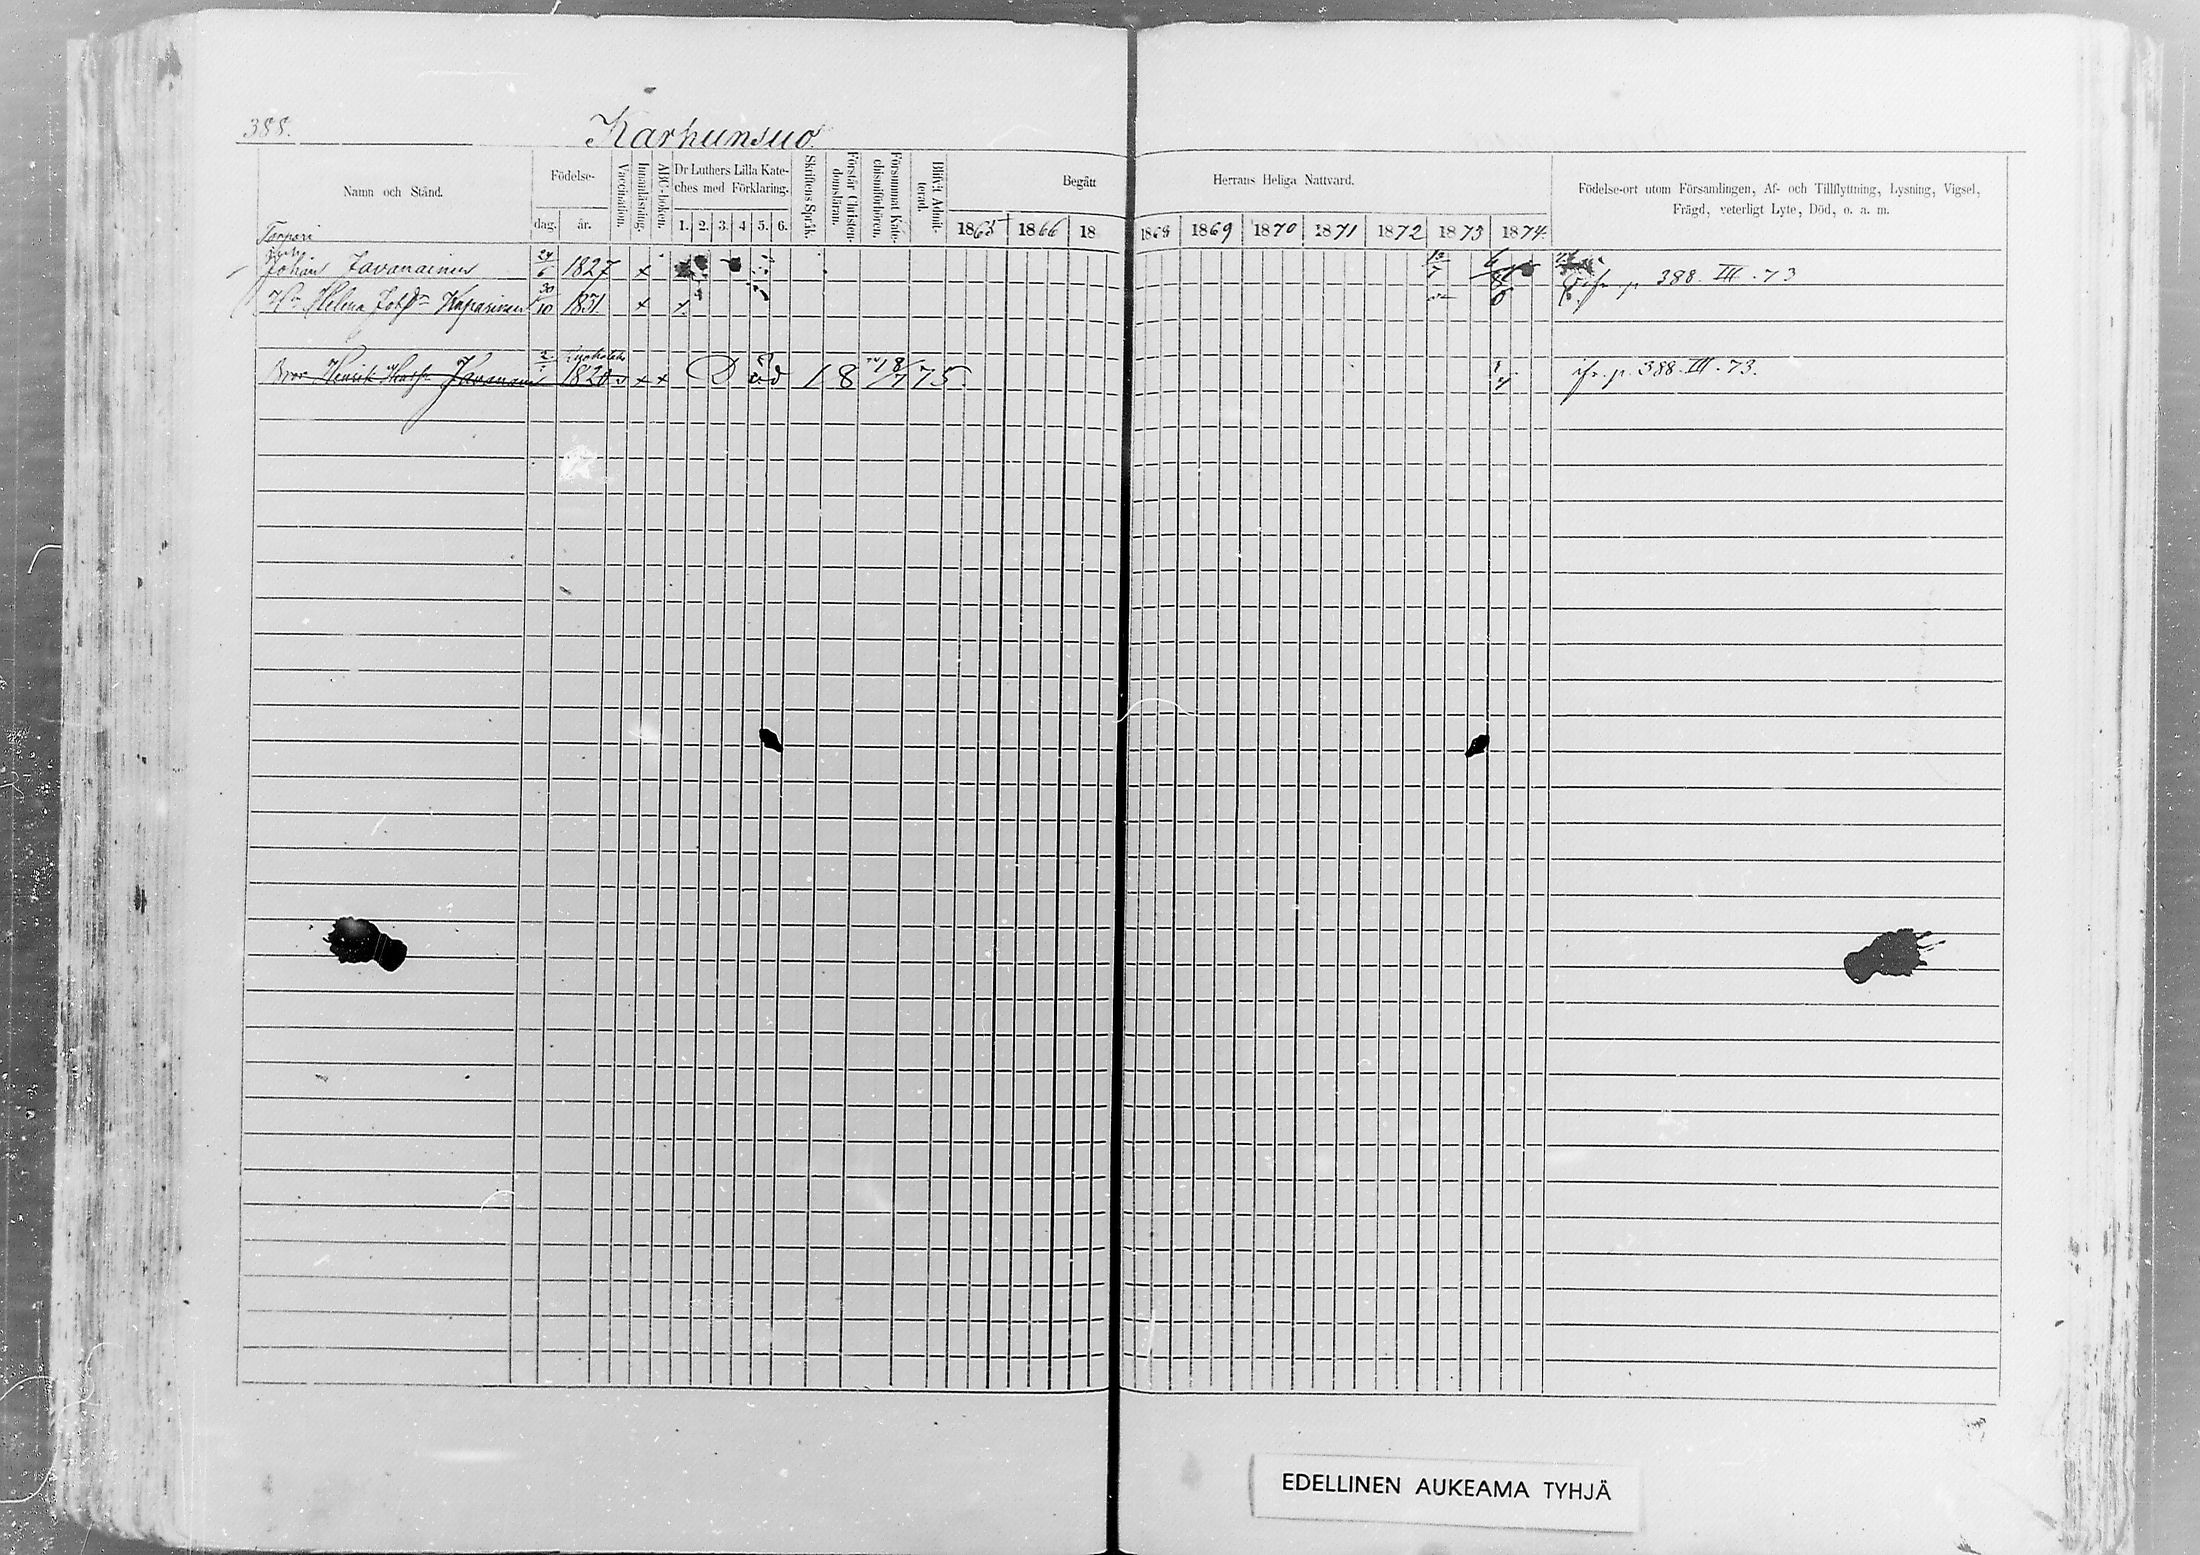 388.
Karhunsuo
Namn och Stånd.
Födelse-
dag.
år.
Vaccination.
Innanläsning.
ABC-boken.
Dr Luthers Lilla Kate-
ches med Förklaring.
1. 2. 3. 4 5. 6.
Skriftens Språk.
Förstår Christen-
domsläran.
Försummat Kate-
chismiförhören.
Blifvit Admit-
terad.
Begått
Herrans Heliga Nattvard.
1865 1866 18
1868 1869 1870 1871 1872 1873 1874.
Födelse-ort utom Församlingen, Af- och Tillflyttning, Lysning, Vigsel,
Frägd, veterligt Lyte, Död, o. a. m.
Torpari
Johan Savanainen 24/6 1827 x
p 388. III. 73
Helena 30/10 1831 x
Henrik 1820 x x Död 18 18/7 75
jfr. p. 388. III. 73.
EDELLINEN AUKEAMA TYHJÄ